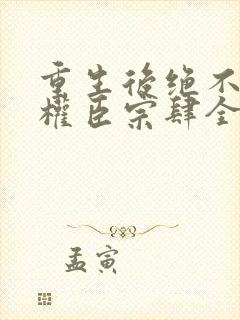 重生後绝不
權臣宗肆全
孟寅